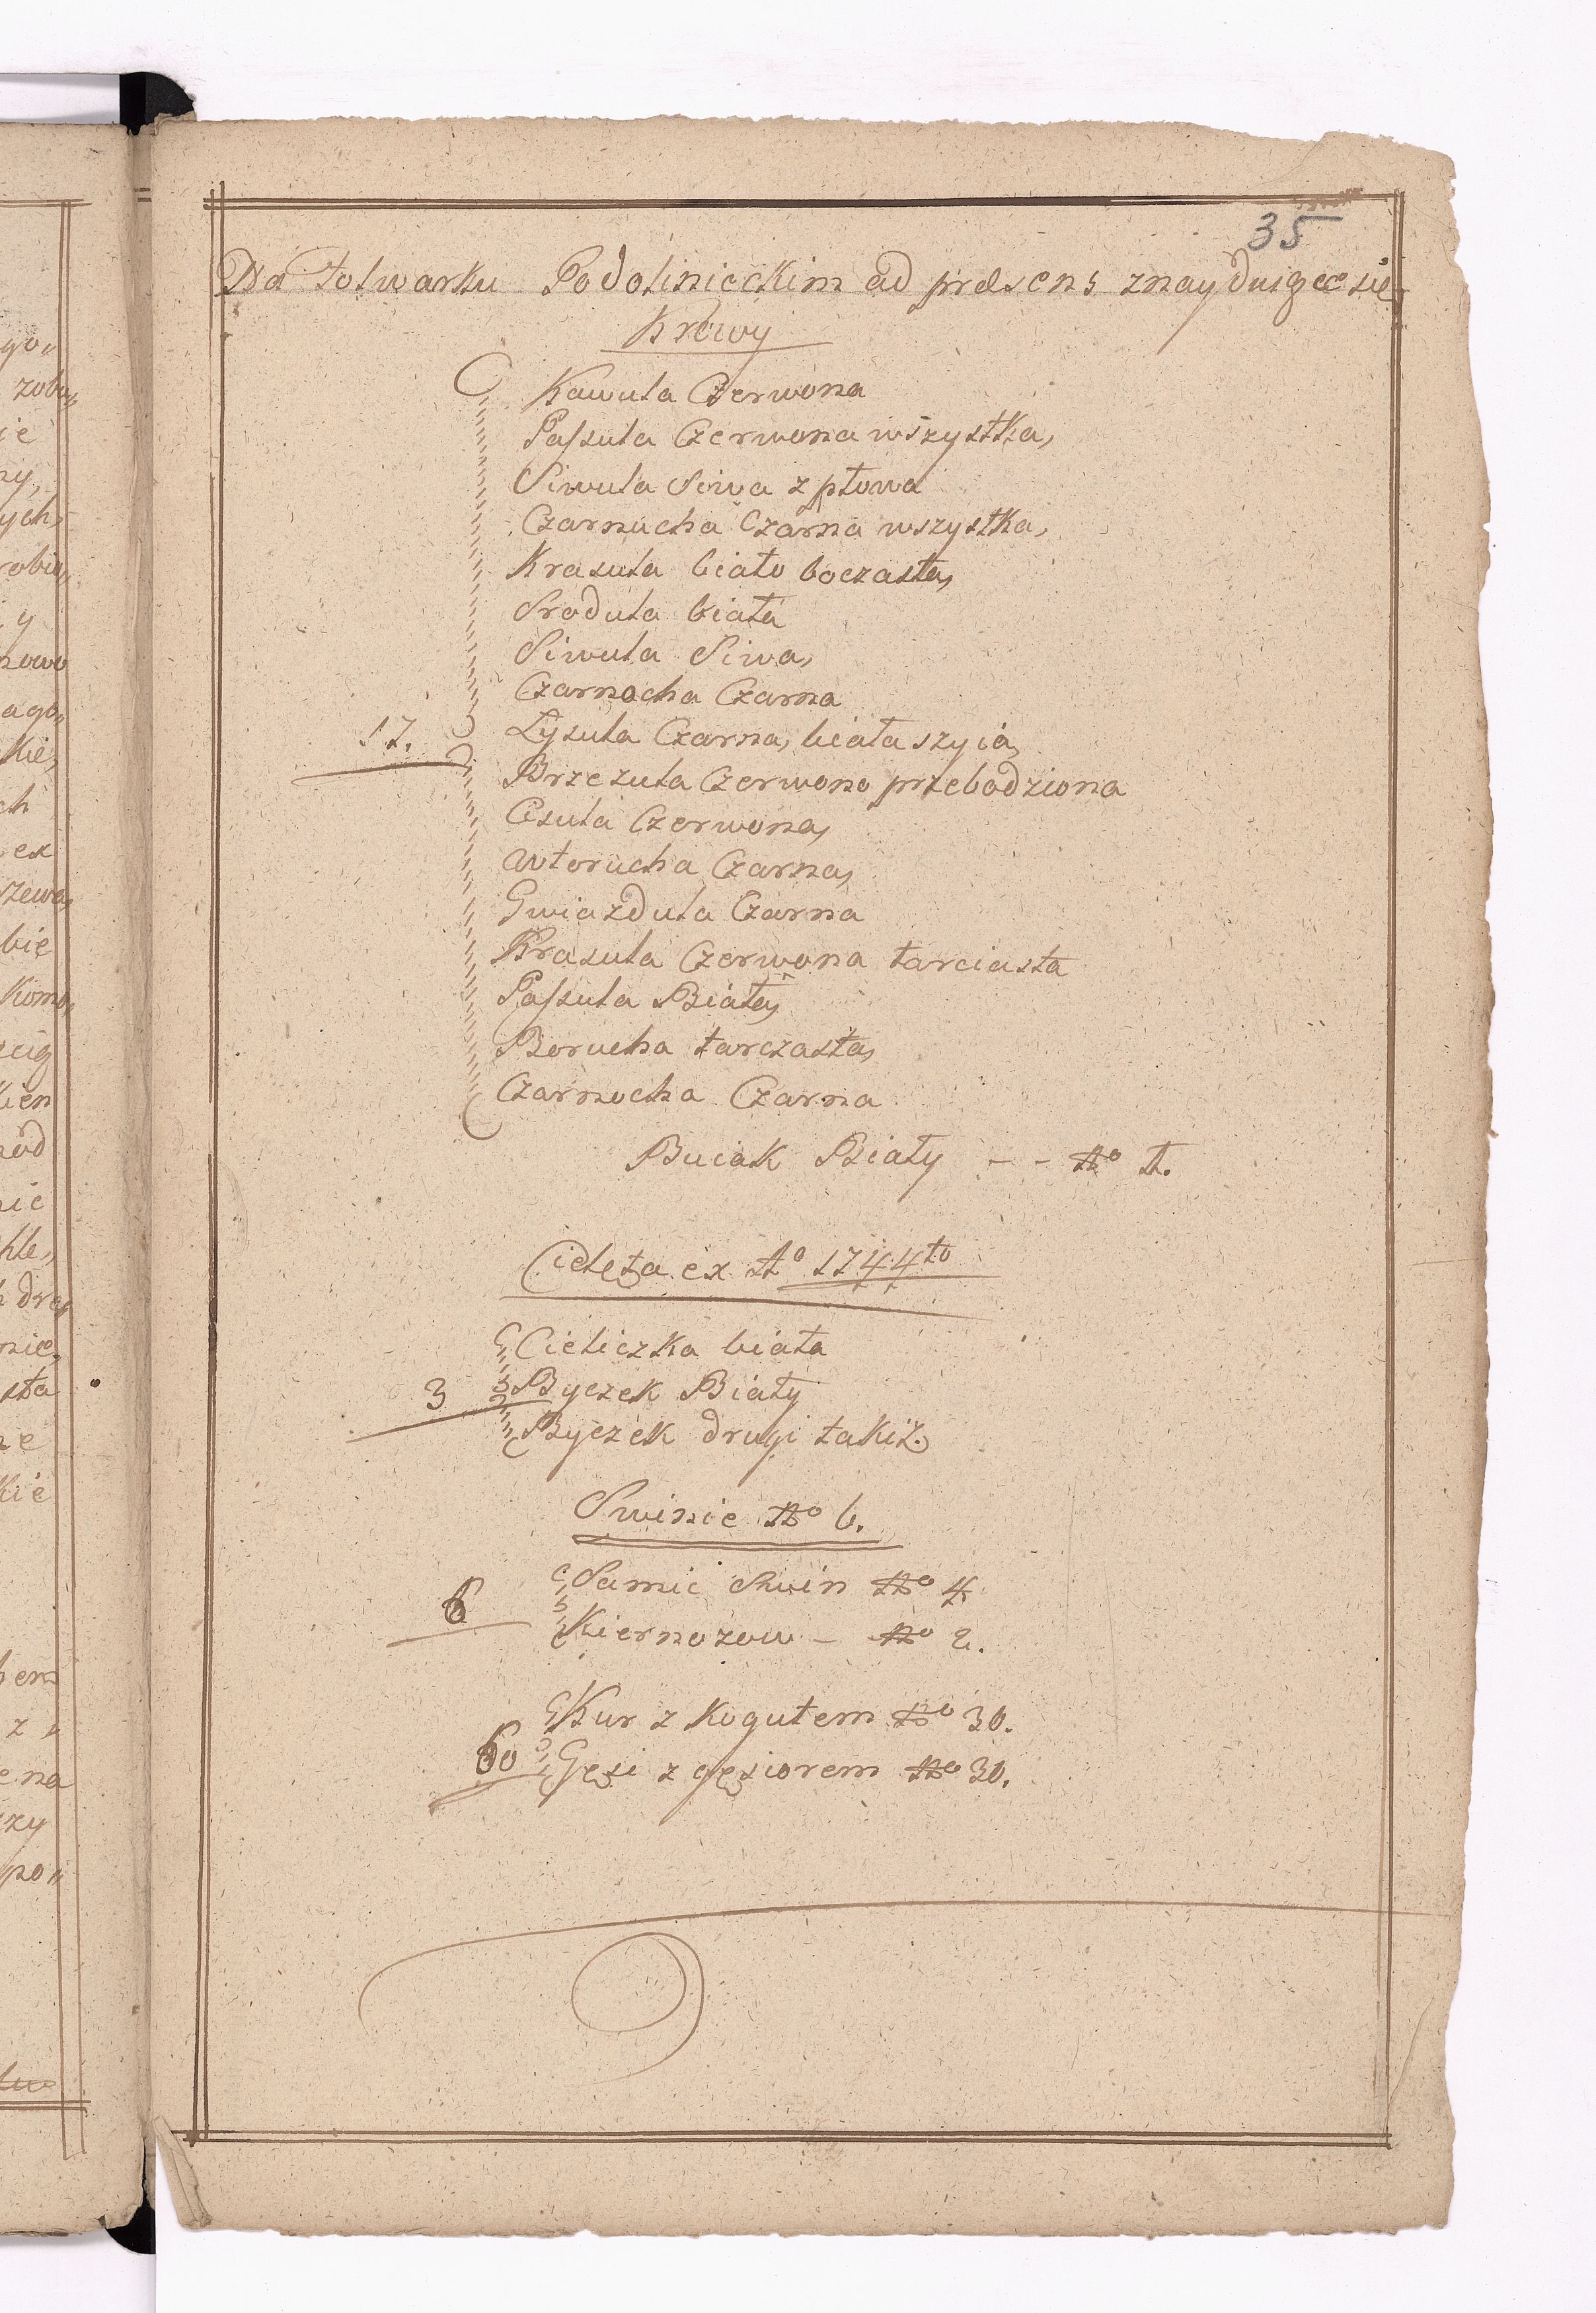 35
Na Folwarku Podolinieckim ad præsens znayduiące się
Krowy
Kawula Czerwona
Passula Czerwona wszystka,
Siwula Siwa z płowa
Czarnucha Czarna wszystka,
Krasula biało boczasta,
Srodula biała
Siwula Siwa,
Czarnocha Czarna
17. Łysula Czarna, biała szyia,
Brzezula Czerwono przebodziona
Cisula Czerwona,
Wtorucha Czarna,
Gwiazdula Czarna
Krasula Czerwona tarciasta
Passula Biała,
Borucha tarczasta,
Czarnocha Czarna
Buiak Biały - - No 1.
Cielęta ex Ao 1744to
Cieliczka biała
3 Byczek Biały
Byczek drugi takiż.
Swinie No 6.
Samic Swin No 4
6
Kiernozow - No 2.
Kur z Kogutem No 30.
60 Gęsi z gęsiorem No 30.